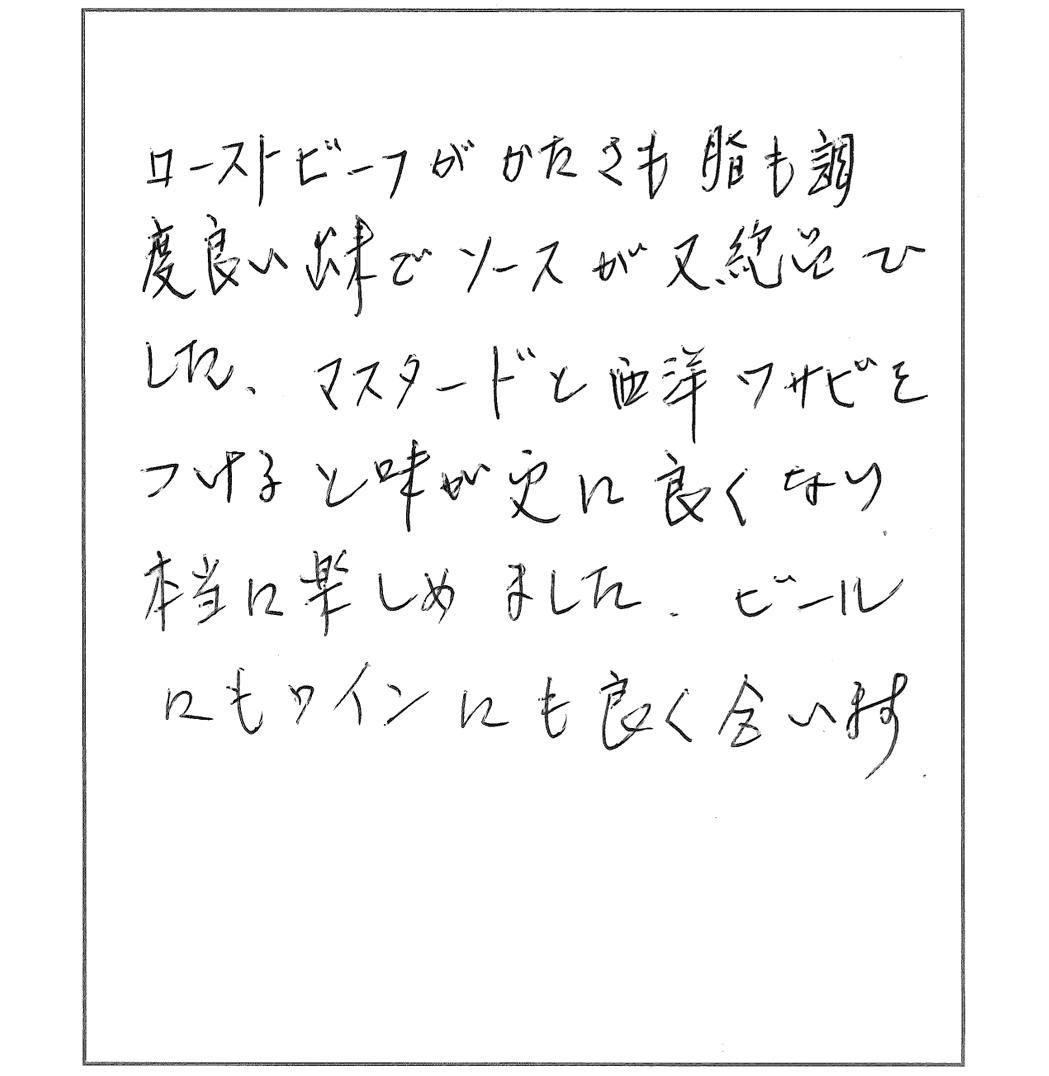 ローストビーフがかたさも脂も調
度良い味でソースが又絶品で
した、マスタードと西洋ワサビを
つけると味が更に良くなり
本当に楽しめました.ビール
にもワインにも良く合います.